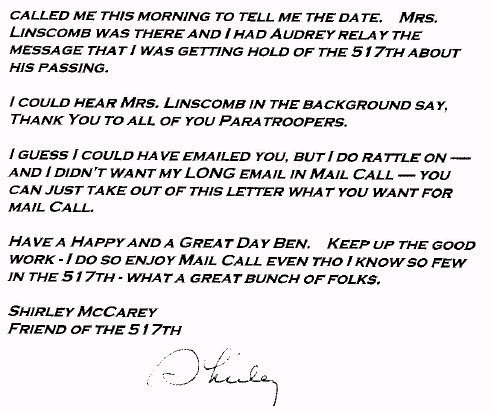 CALLED ME THIS MORNING TO TELL ME THE DATE.   MRS.
LINSCOMB WAS THERE AND I HAD AUDREY RELAY THE
MESSAGE THAT I WAS GETTING HOLD OF THE 517TH ABOUT
HIS PASSING.
I COULD HEAR MRS. LINSCOMB IN THE BACKGROUND SAY,
THANK YOU TO ALL OF YOU PARATROOPERS.
I GUESS I COULD HAVE EMAILED YOU, BUT I DO RATTLE ON —
AND I DIDN'T WANT MY LONG EMAIL IN MAIL CALL — YOU
CAN JUST TAKE OUT OF THIS LETTER WHAT YOU WANT FOR
MAIL CALL.
HAVE A HAPPY AND A GREAT DAY BEN.   KEEP UP THE GOOD
WORK - I DO SO ENJOY MAIL CALL EVEN THO I KNOW SO FEW
IN THE 517TH - WHAT A GREAT BUNCH OF FOLKS.
SHIRLEY MCCAREY
FRIEND OF THE 517TH
Shirley